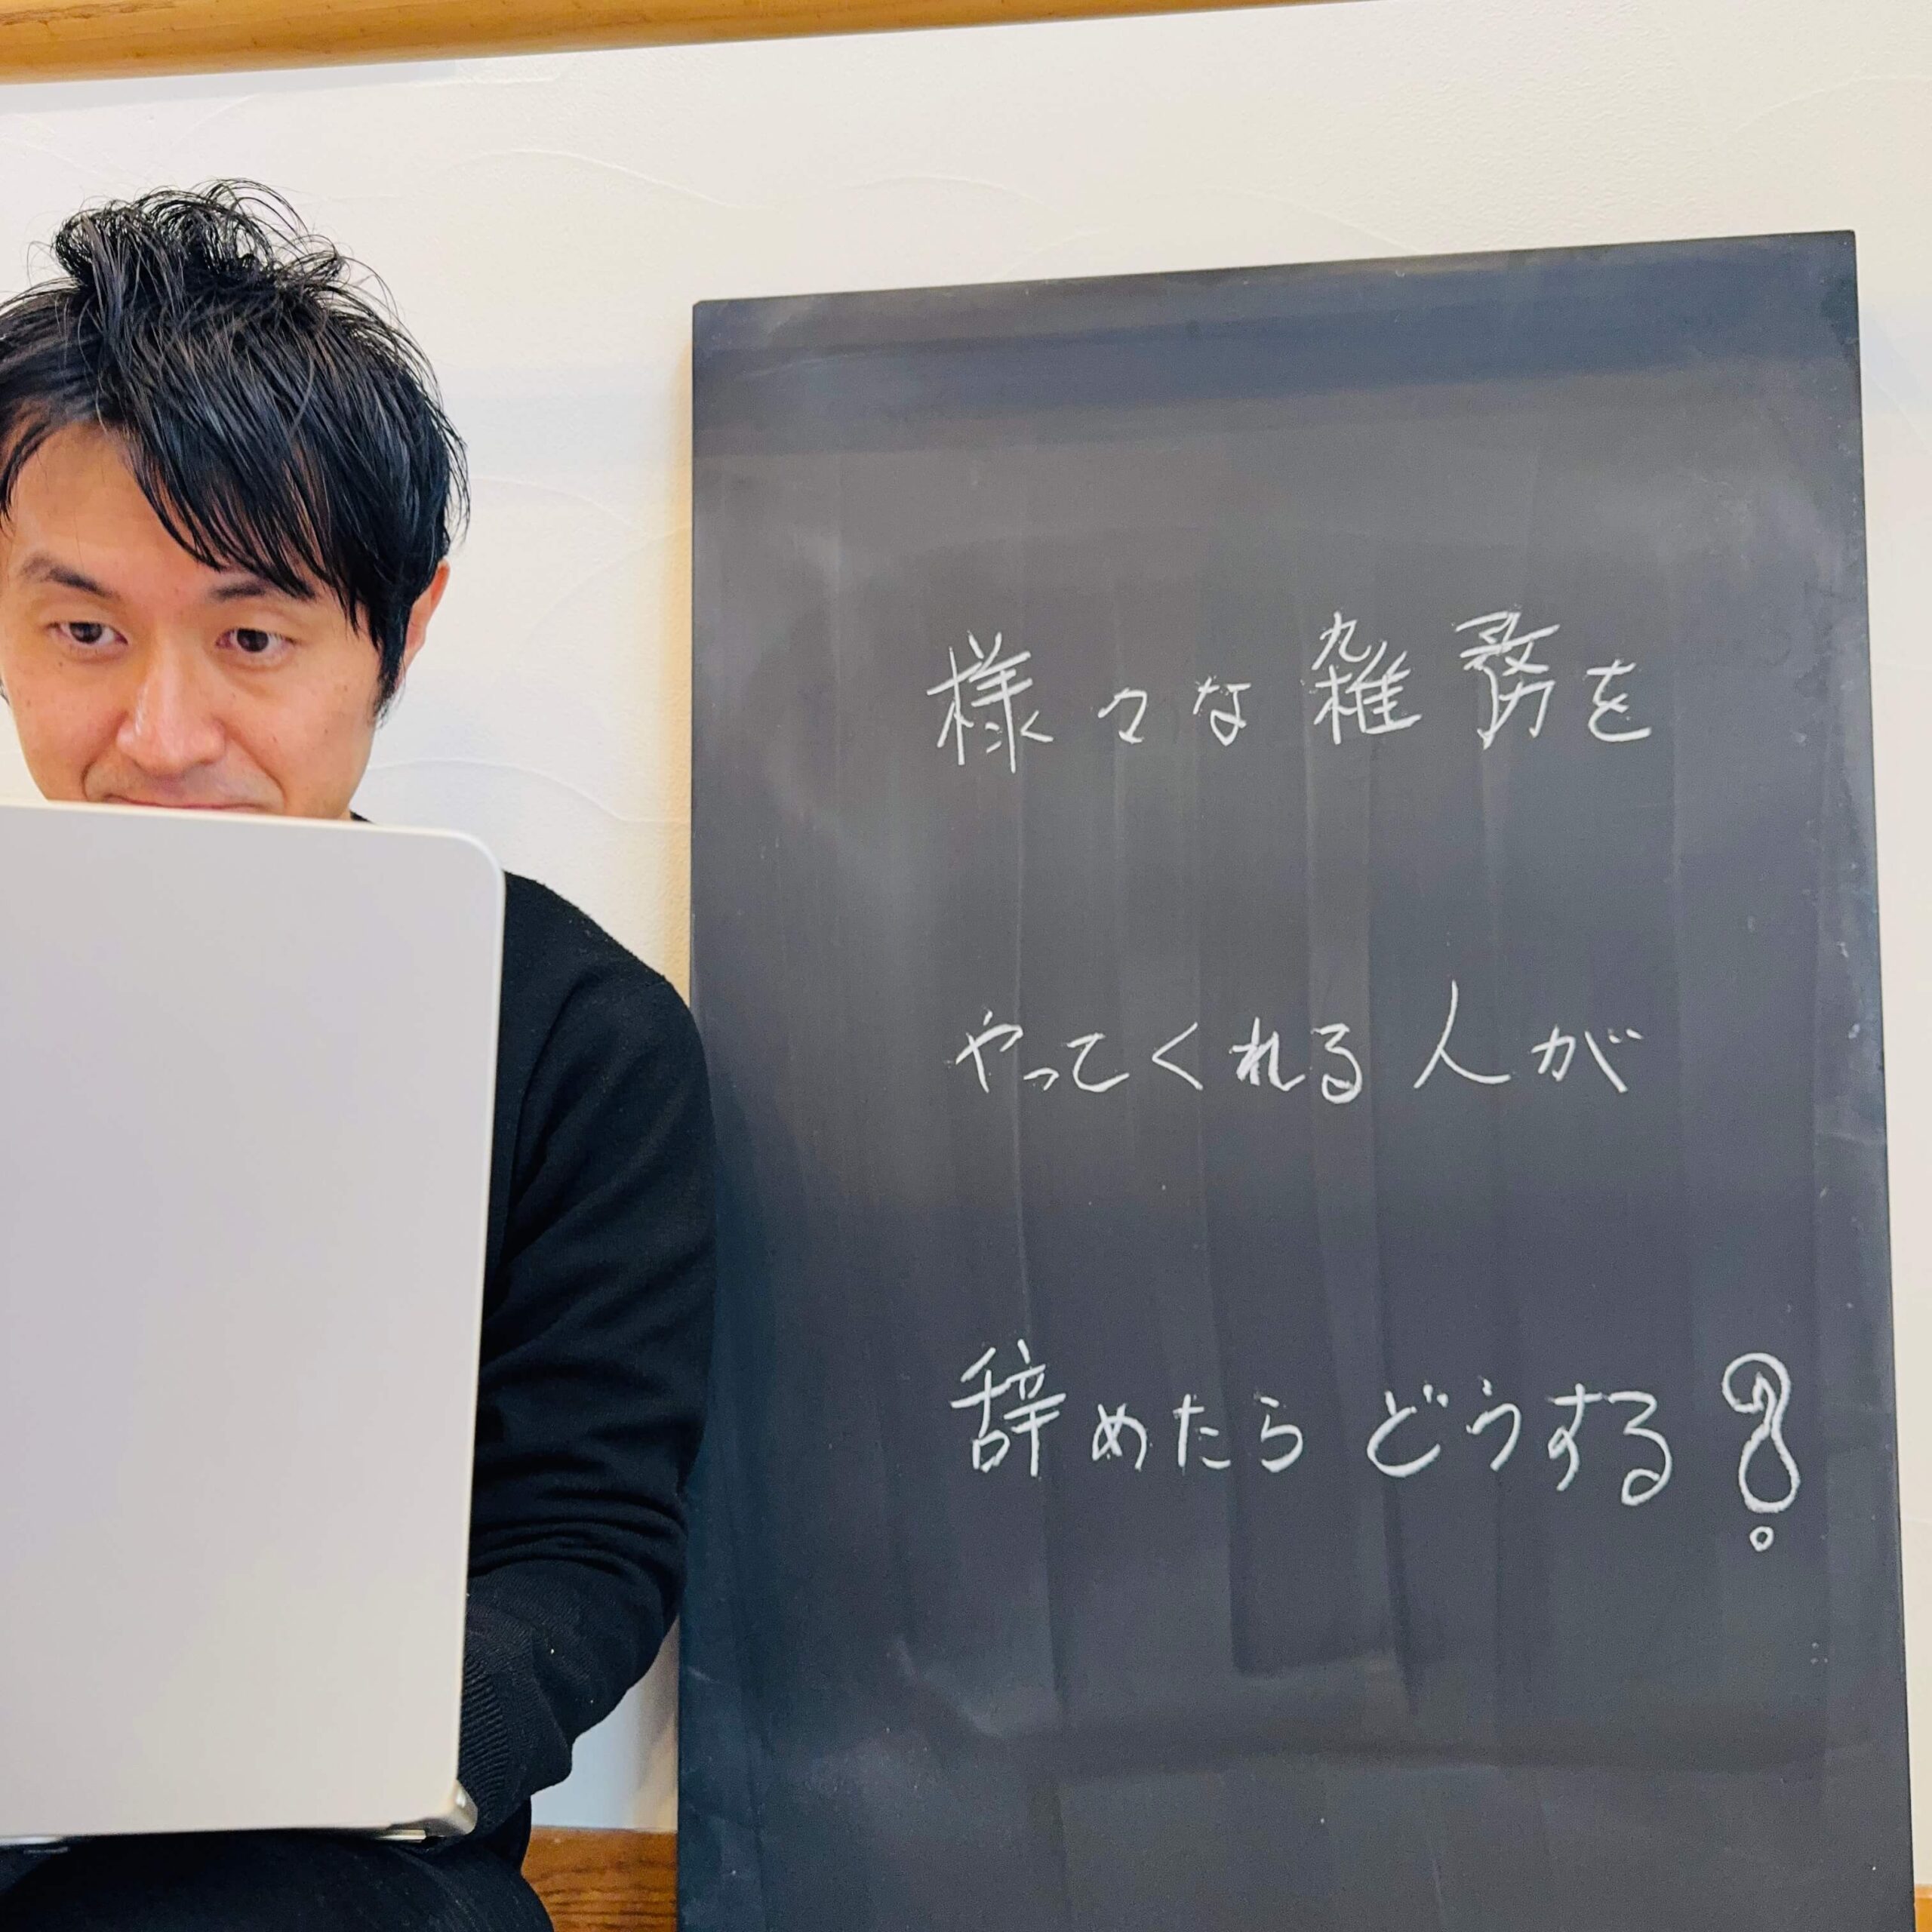 様々な雑務を
やってくれる人が
辞めたらどうする?